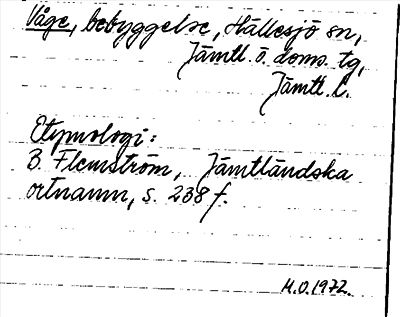 Våge, bebyggelse, Hällesjö sn,
Jämtl. ö. doms. tg,
Jämtl. l.
Etymologi:
B. Flemström, Jämtländska
ortnamn, s. 238 f.
M.O. 1972.